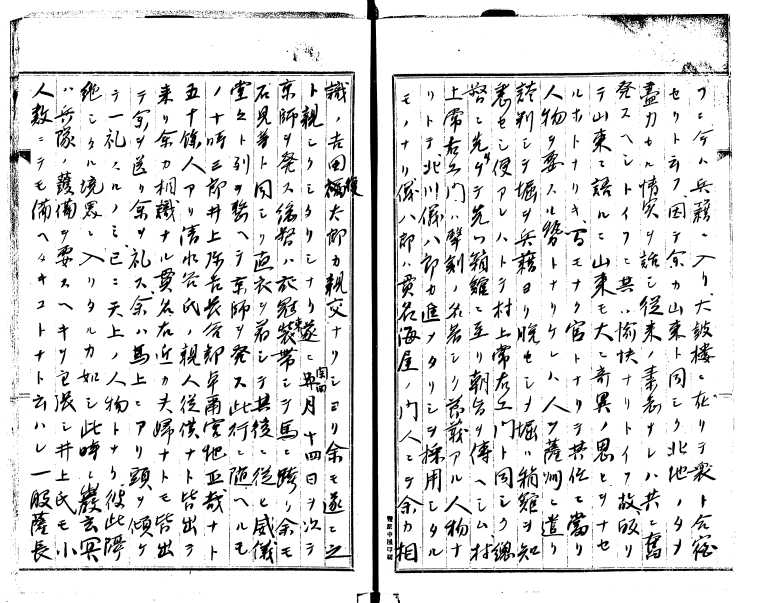 フニ今ハ兵籍ニ入リ大鼓楼ニ在リテ衆ト合宿
セリト云フ因テ余カ山東ト同シク北地ノタメ
盡力セル情実ヲ話シ従来ノ素志ナレハ共ニ奮
発スヘシトイフニ其ハ愉快ナリトイフ故ヨリ
テ山東ニ語ルニ山東モ大ニ奇異ノ思ヒヲナセ
ルホトナリキ間モナク官トナリテ其任ニ當リ
人物ヲ要スル勢トナリケレハ人ヲ薩洲ニ遣リ
談判シテ堀ヲ兵籍ヨリ脱セシメ堀ハ箱館ヲ知
悉セシ便アレハトテ村上常右エ門ト同シク總
督ニ先ダテ先ツ箱館ニ至リ朝旨ヲ傳ヘシム村
上常右エ門ハ撃剣ノ名者シク気莪アル人物ナ
リトテ北川儀八郎カ進メタリシヲ採用シタル
モノナリ儀八郎ハ貫名海屋ノ門人ニテ余カ相
識ノ吉田復太郎カ親交ナリシヨリ余モ遂ニ之
ト親シクシタリシナリ遂ニ閏四月十四日ヲ次テ
京師ヲ発ス總督ハ衣冠装束帯シテ馬ニ跨リ余モ
石見守ト同シク直衣ヲ着シテ其後ニ従ヒ威儀
堂々ト列ヲ整ヘテ京師ヲ発ス此行ニ随ヘルモ
ノ十時三郎井上弥吉長谷部卓爾宮地正哉ナト
五十餘人アリ清水谷氏ノ親人従僕ナト皆出テ
来リ余カ相識ナル貫名右近カ夫婦ナトモ皆出
テ余ヲ送リ余ヲ礼ス余ハ馬上ニアリ頭ヲ傾ケ
テ一礼スルノミ已ニ天上ノ人物トナリ彼此隔
絶シタル境界ニ入リタルカ如シ此時ニ巖玄冥
ハ兵隊ノ護備ヲ要スヘキヲ主張シ井上氏モ小
人数ニテモ備ヘタキコトナト云ハレ一股薩長